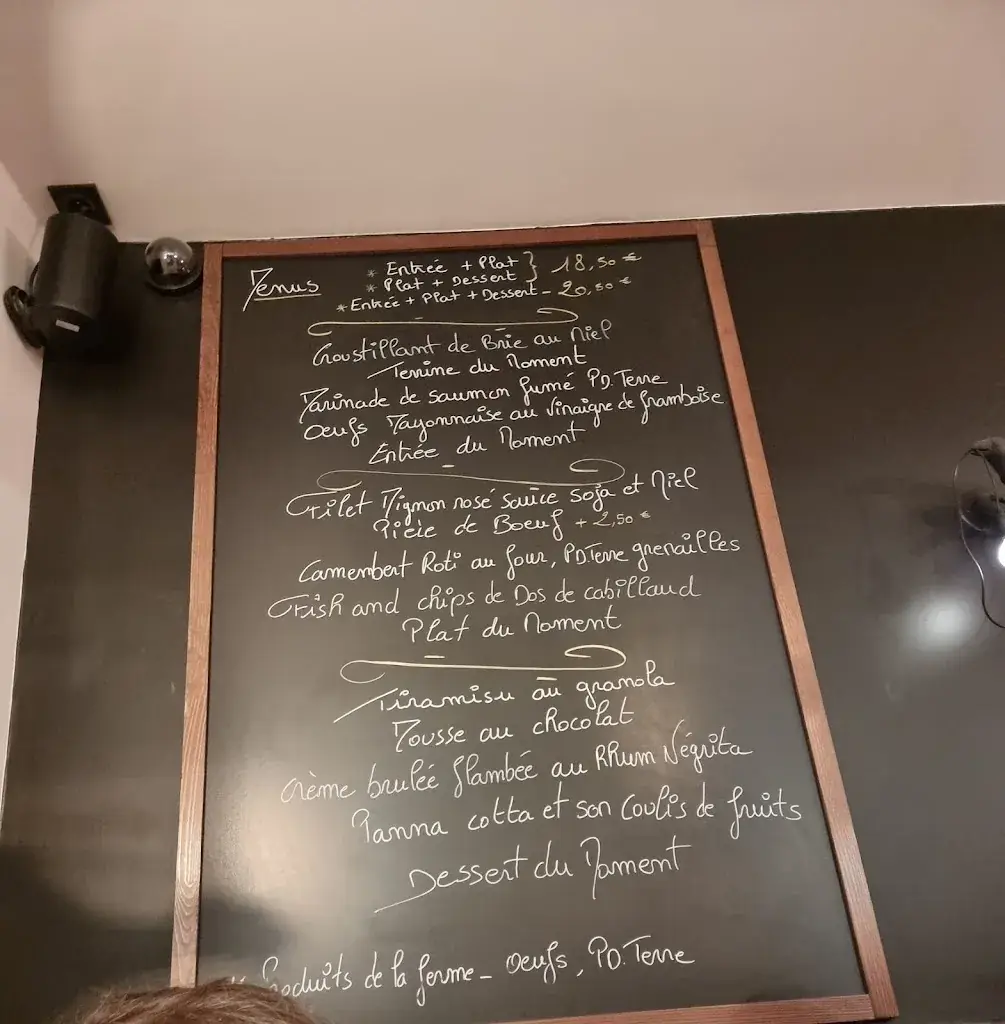 Menus
* Entrée + Plat } 18,50 €
* Plat + Dessert
* Entrée + Plat + Dessert - 20,50 €
Croustillant de Brie au Miel
Terrine du Moment
Marinade de saumon fumé PD.Terre
Oeufs Mayonnaise au Vinaigre de framboise
Entrée du Moment
Filet Mignon rosé sauce soja et Miel
Pièce de Boeuf + 2,50 €
Camembert Roti au four, PD.Terre grenailles
Fish and chips de Dos de cabillaud
Plat du Moment
Tiramisu au granola
Mousse au chocolat
Crème brulée flambée au Rhum Négrita
Panna cotta et son Coulis de fruits
Dessert du Moment
Produits de la ferme - Oeufs, PD.Terre